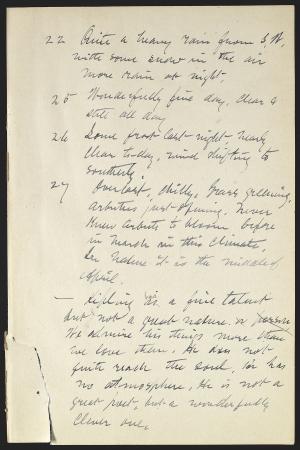 22 Quite a heavy rain from S.W.
with some snow in the air
more rain at night.
25 Wonderfully fine day, clear &
still all day
26 Some frost last night. Nearly
clear to-day, wind shifting to
southerly
27 Overcast, chilly, grass greening,
arbutus just opening. Never
knew arbutus to bloom before
in March in this climate.
In nature it is the middle of
April.
— Kipling is a fine talent
but not a great nature or person
We admire his things more than
we love them. He does not
quite reach the soul, he has
no atmosphere, He is not a
great poet, but a wonderfully
clever one.